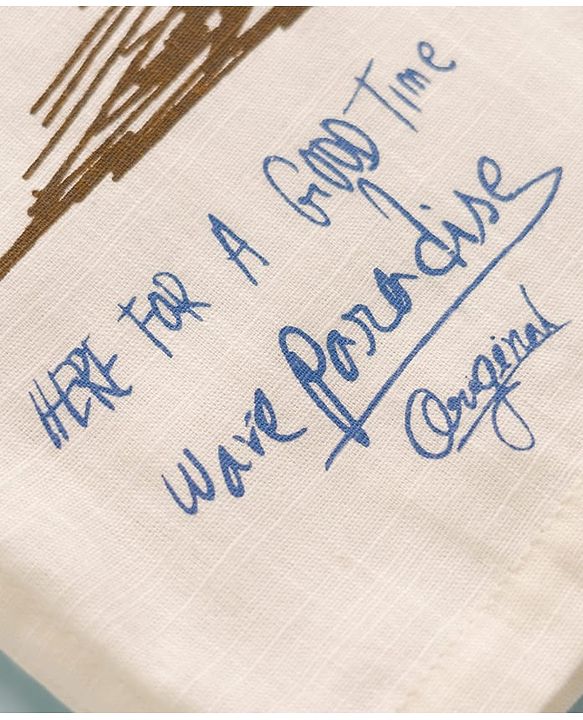 HERE FOR A GOOD Time
wave Paradise
Original